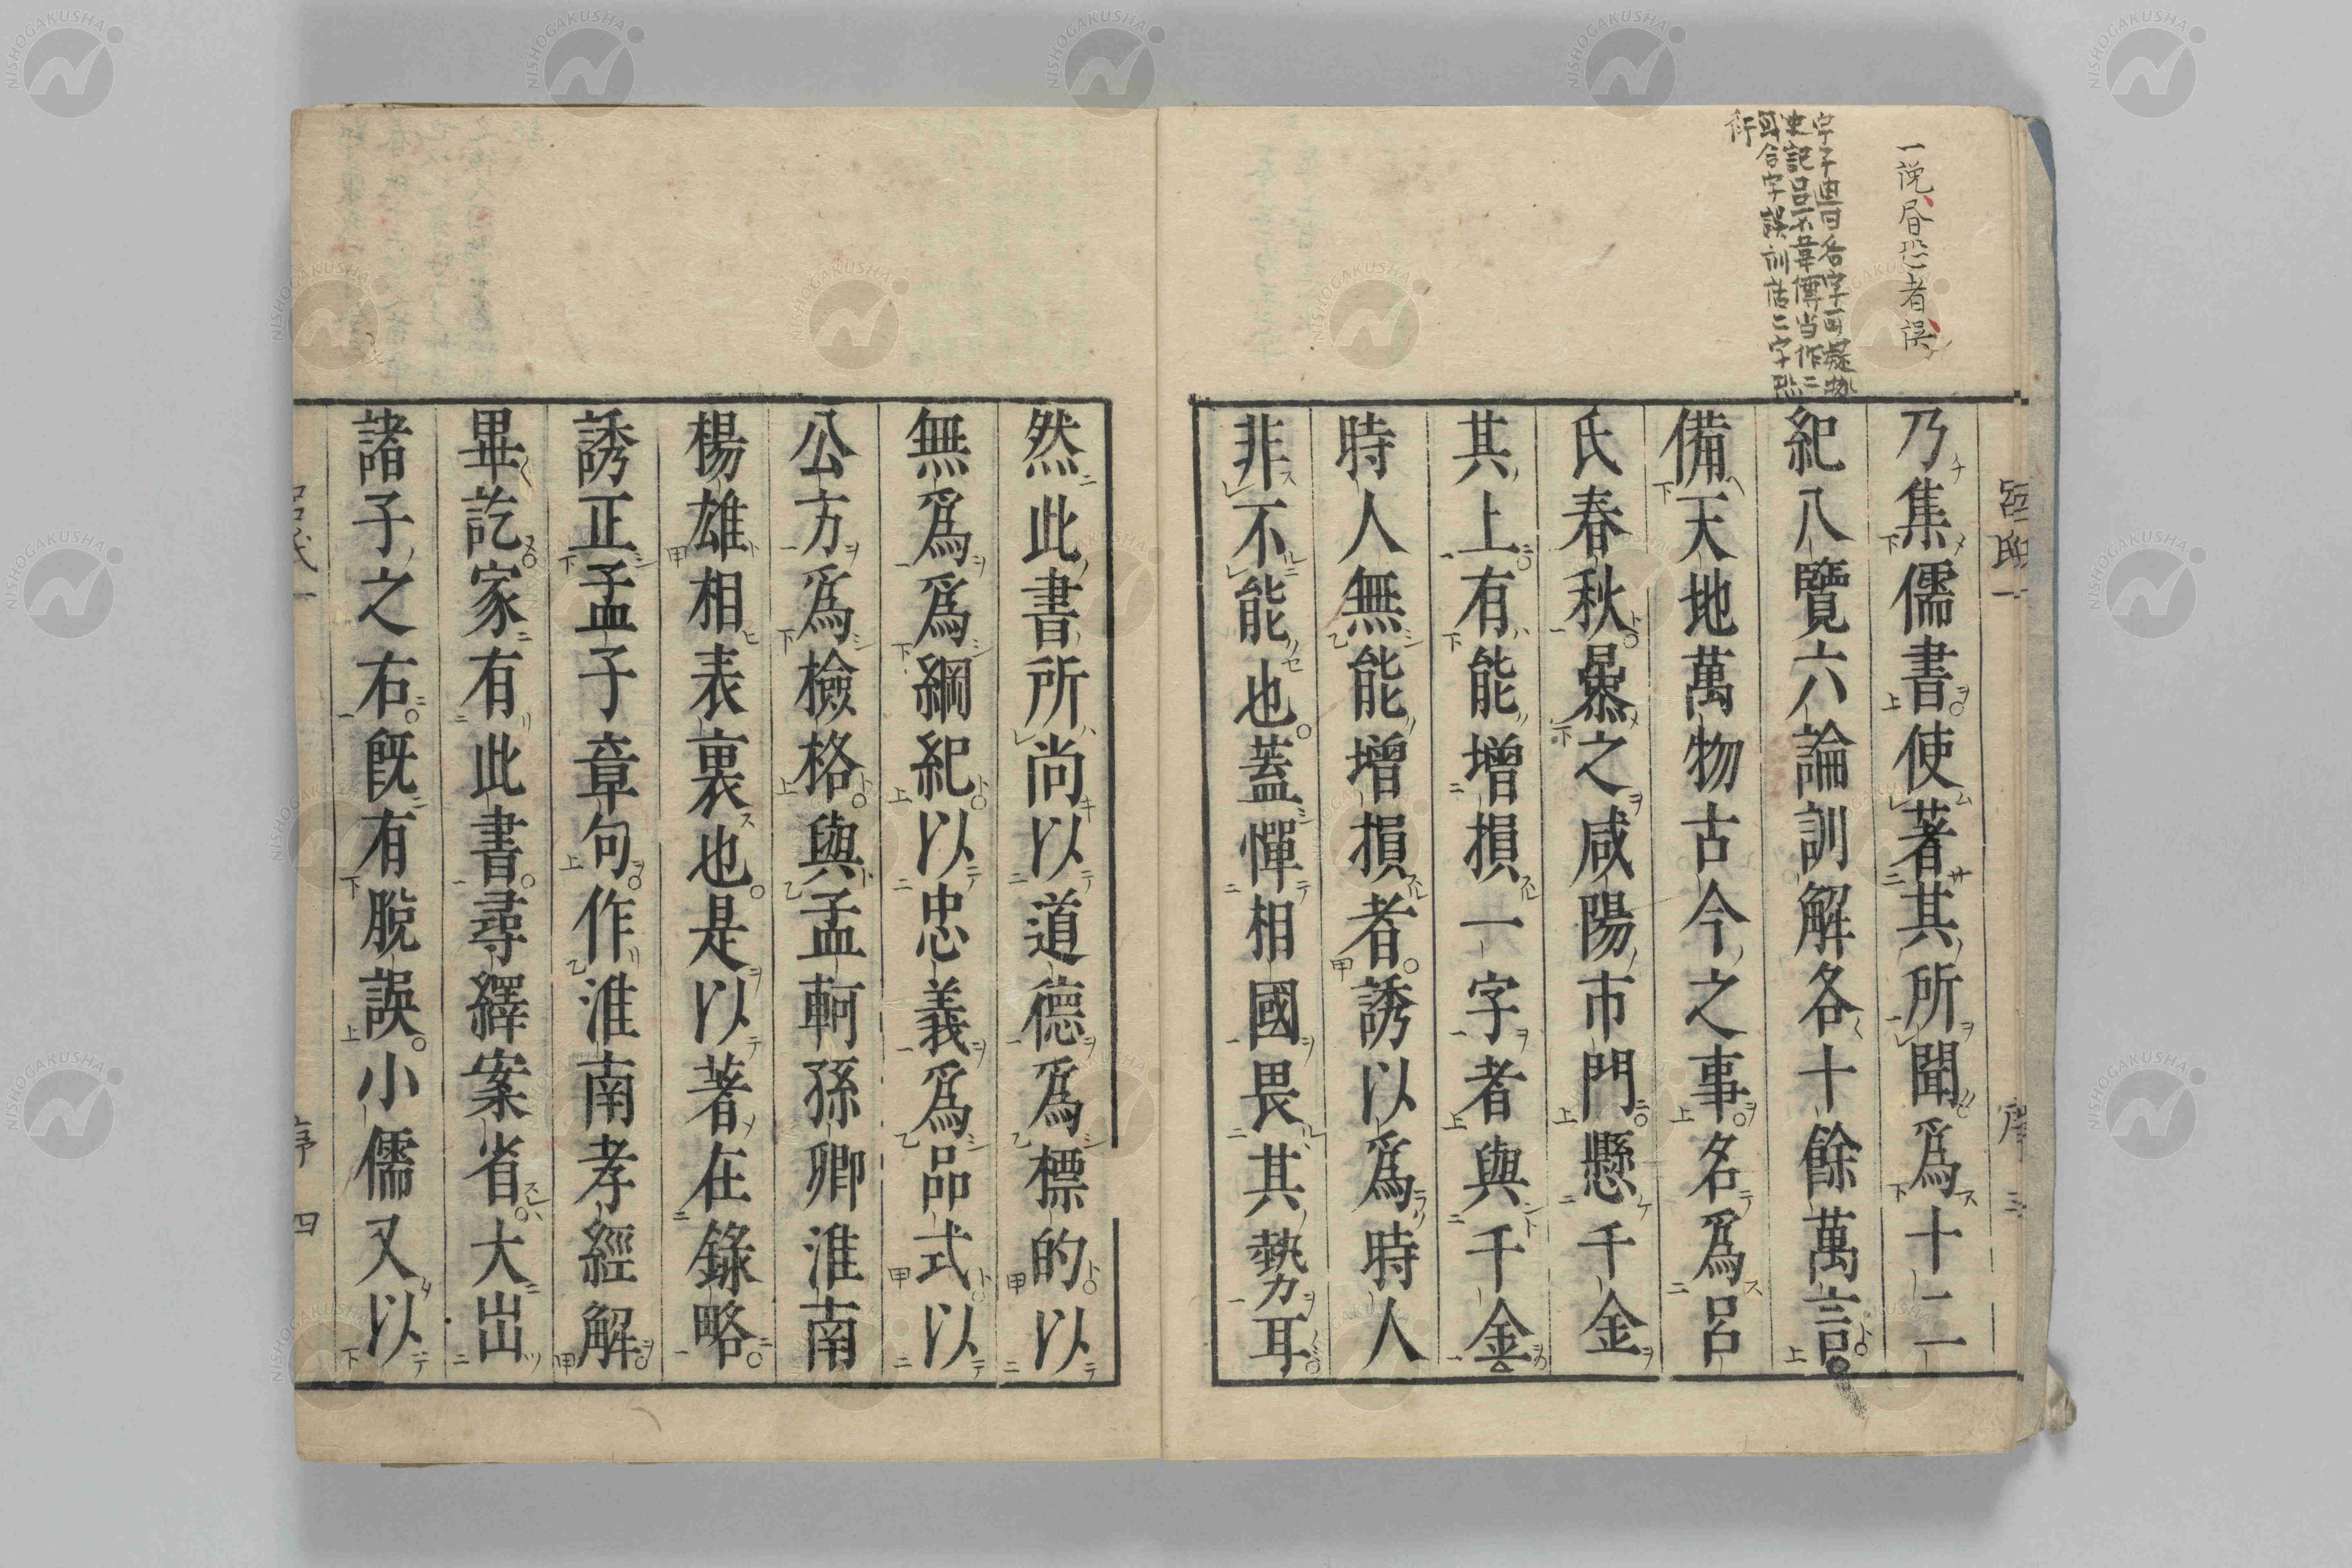 一説㫺恐者誤
字子直曰各字可疑
史記呂不韋傳当作二
可合字誤訓詁二字恐
衍
呂氏一
序
三
乃集儒書使著其所聞爲十二
紀八覽六論訓解各十餘萬言
備天地萬物古今之事名爲呂
氏春秋㬥之咸陽市門懸千金
其上有能增損一字者與千金
時人無能增損者誘以爲時人
非不能也蓋憚相國畏其勢耳
然此書所尚以道德爲標的以
無爲爲綱紀以忠義爲品式以
公方爲檢格與孟軻孫卿淮南
楊雄相表裏也是以著在錄略
誘正孟子章句作淮南孝經解
畢訖家有此書尋繹案省大出
諸子之右既有脫誤小儒又以
呂氏一
序
四
NISHOGAKUSHA